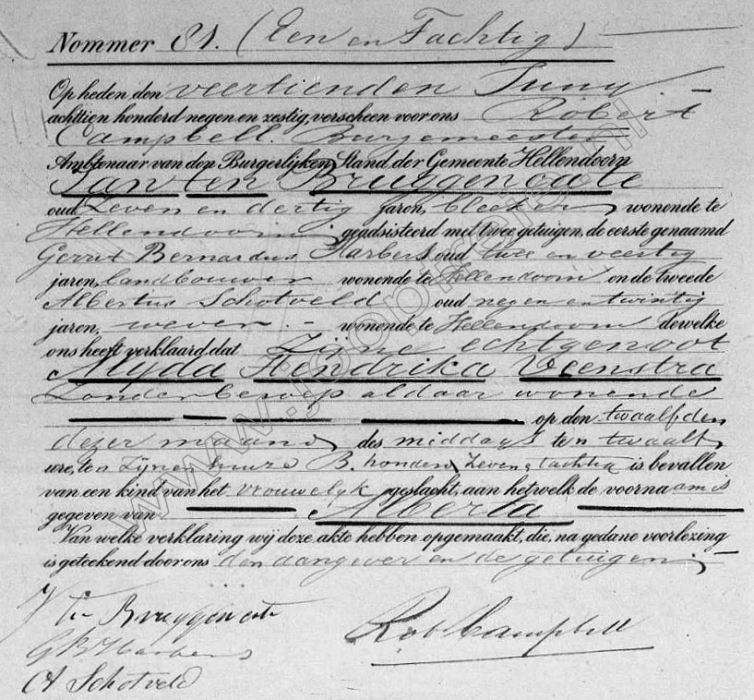 Nommer 81. (Een en Tachtig)
Op heden den veertienden Juny
achttien honderd negen en zestig, verscheen voor ons Robert
Campbell. Burgemeester
Ambtenaar van den Burgerlijken Stand der Gemeente Hellendoorn
Jan ten Bruggencate
oud zeven en dertig jaren, bleeker wonende te
Hellendoorn geadsisteerd met twee getuigen, de eerste genaamd
Gerrit Bernardus Harbers oud twee en veertig
jaren, landbouwer wonende te Hellendoorn en de tweede
Albertus Schotveld oud negen en twintig
jaren, wever. wonende te Hellendoorn Dewelke
ons heeft verklaard dat Zijne echtgenoot
Alyda Hendrika Veenstra
Zonder beroep aldaar wonende
op den twaalfden
dezer maand des middags ten twaalf
ure, ten zijnen huize B. honderd zeven & tachtig is bevallen
van een kind van het vrouwelyk geslacht, aan hetwelk de voornaam is
gegeven van Alberta
Van welke verklaring wij deze akte hebben opgemaakt, die, na gedane voorlezing
is geteekend door ons den aangever en de getuigen.
J ten Bruggencate
GB Harbers
A Schotveld
Rob Campbell